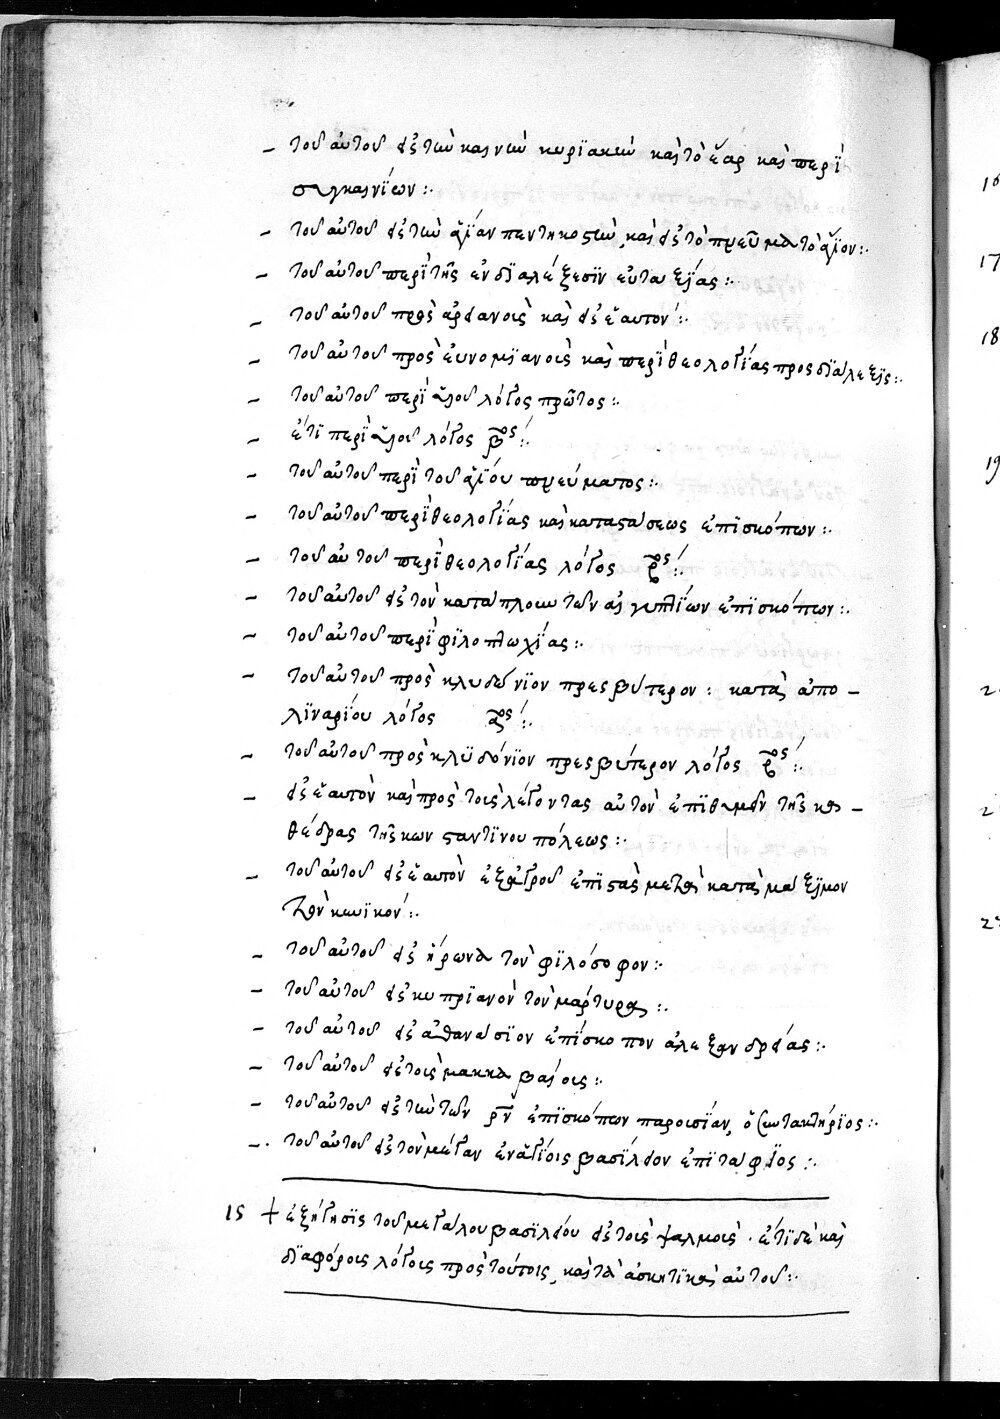 – τοῦ αὐτοῦ εἰς τὴν καινὴν κυριακὴν καὶ τὸ ἔαρ καὶ περὶ
ἐγκαινίων :·
– τοῦ αὐτοῦ εἰς τὴν ἁγίαν πεντηκοστὴν, καὶ εἰς τὸ πνεῦμα τὸ ἅγιον :·
– τοῦ αὐτοῦ περὶ τῆς ἐν διαλέξεσιν εὐταξίας :·
– τοῦ αὐτοῦ πρὸς ἀρειανοὺς καὶ εἰς ἑαυτόν :·
– τοῦ αὐτοῦ πρὸς εὐνομιανοὺς καὶ περὶ θεολογίας προσδιάλεξις :·
– τοῦ αὐτοῦ περὶ υἱοῦ λόγος πρῶτος :·
– ἔτι περὶ υἱοῦ λόγος βος :·
– τοῦ αὐτοῦ περὶ τοῦ ἁγίου πνεύματος :·
– τοῦ αὐτοῦ περὶ θεολογίας καὶ καταστάσεως ἐπισκόπων :·
– τοῦ αὐτοῦ περὶ θεολογίας λόγος βος :·
– τοῦ αὐτοῦ εἰς τὸν κατάπλουν τῶν αἰγυπτίων ἐπισκόπων :·
– τοῦ αὐτοῦ περὶ φιλοπτωχίας :·
– τοῦ αὐτοῦ πρὸς κλυδόνιον πρεσβύτερον : κατὰ ἀπο –
λιναρίου λόγος αος :·
– τοῦ αὐτοῦ πρὸς κλυδόνιον πρεσβύτερον λόγος βος :·
– εἰς ἑαυτὸν καὶ πρὸς τοὺς λέγοντας αὐτὸν ἐπιθυμεῖν τῆς κα –
θέδρας τῆς κωνσταντίνου πόλεως :·
– τοῦ αὐτοῦ εἰς ἑαυτὸν ἐξ ἀγροῦ ἐπιστὰς μετὰ κατὰ μάξιμον
τὸν κυνικόν :·
– τοῦ αὐτοῦ εἰς ἥρωνα τὸν φιλόσοφον :·
– τοῦ αὐτοῦ εἰς κυπριανὸν τὸν μάρτυρα :·
– τοῦ αὐτοῦ εἰς ἀθανάσιον ἐπίσκοπον ἀλεξανδρείας :·
– τοῦ αὐτοῦ εἰς τοὺς μακκαβαίους :·
– τοῦ αὐτοῦ εἰς τὴν τῶν ρν ἐπισκόπων παρουσίαν, ὁ συντακτήριος :·
– τοῦ αὐτοῦ εἰς τὸν μέγαν ἐν ἁγίοις βασίλειον ἐπιτάφιος :·
15 + ἐξήγησις τοῦ μεγάλου βασιλείου εἰς τοὺς ψαλμούς · ἔτι δὲ καὶ
διαφόροις λόγοις πρὸς τούτοις, καὶ τὰ ἀσκητικὰ αὐτοῦ :·
16
17
18
19